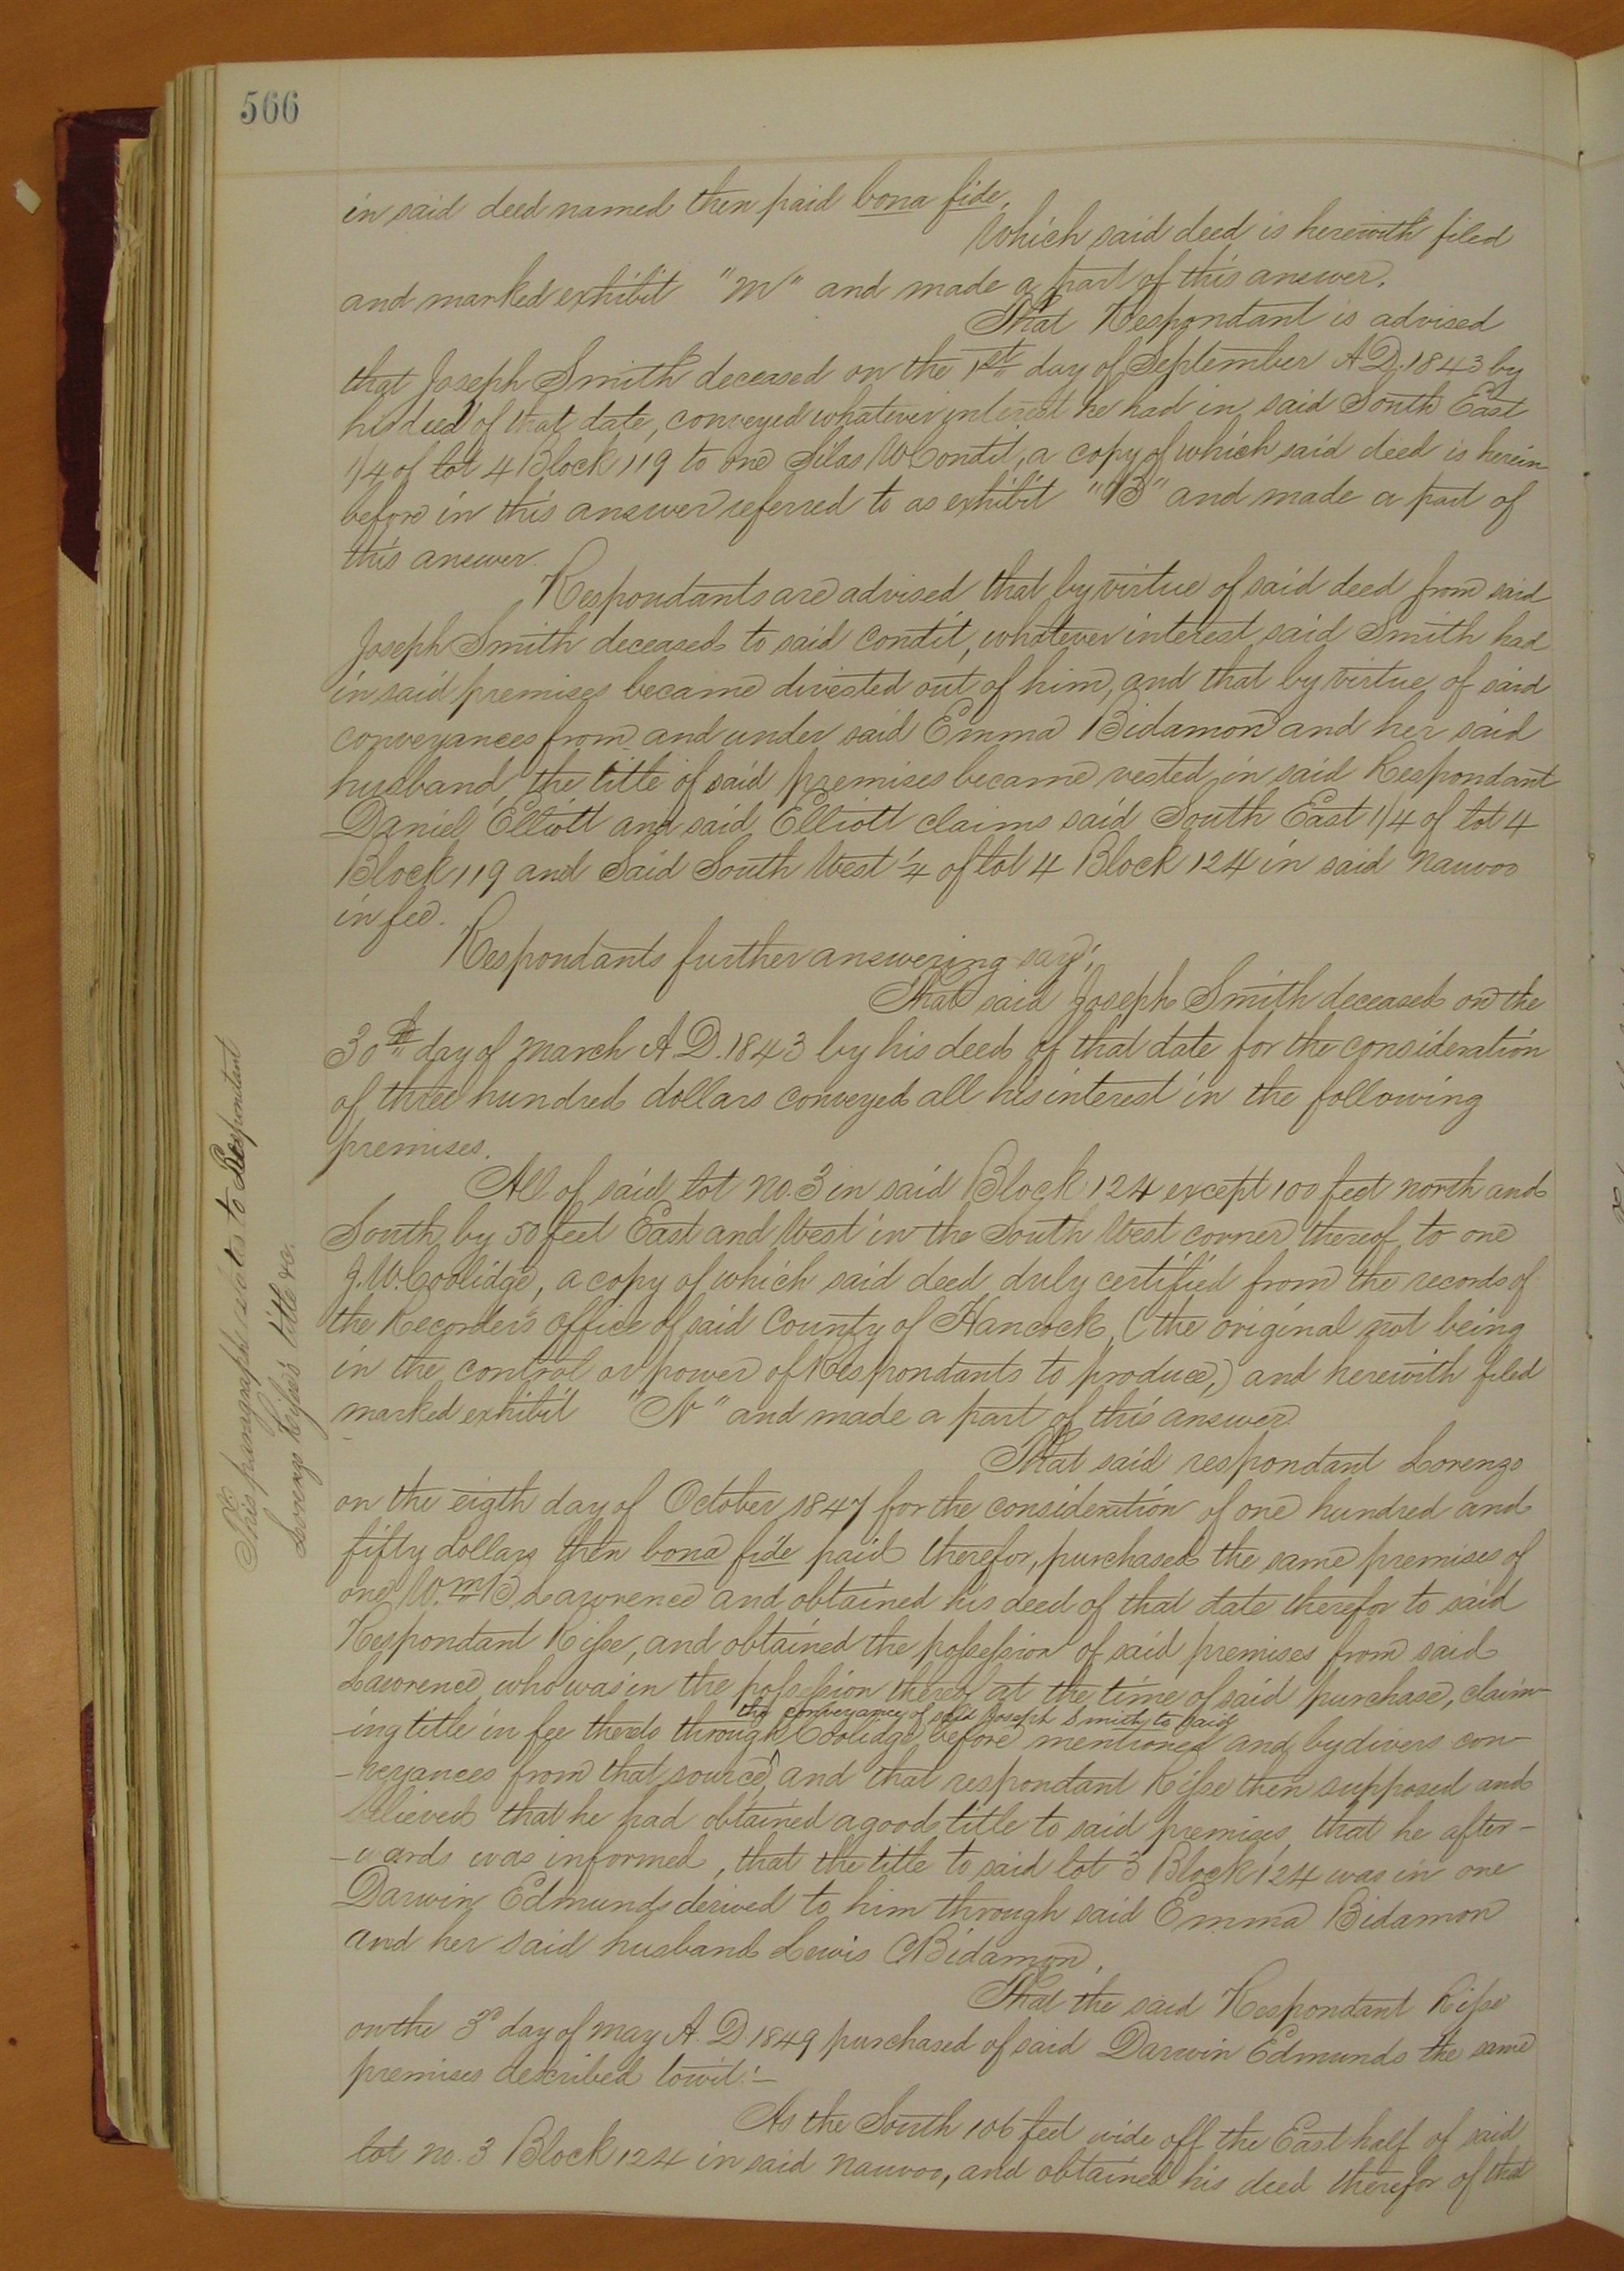 566
in said deed named then paid bona fide.
Which said deed is herewith filed
and marked exhibit "M" and made a part of this answer.
That Respondant is advised
that Joseph Smith deceased on the 1st day of September A.D. 1843 by
his deed of that date, conveyed whatever interest he had in said South East
1/4 of lot 4 Block 119 to one Silas W Condit, a copy of which said deed is herein
before in this answer referred to as exhibit "B" and made a part of
this answer.
Respondants are advised that by virtue of said deed from said
Joseph Smith deceased to said Condit, whatever interest said Smith had
in said premises became divested out of him, and that by virtue of said
conveyances from and under said Emma Bidamon and her said
husband, the title of said premises became vested in said Respondant
Daniel Elliott and said Elliott claims said South East 1/4 of lot 4
Block 119 and Said South West 1/4 of lot 4 Block 124 in said Nauvoo
in fee.
Respondants further answering say;
That said Joseph Smith deceased on the
30th day of March A.D. 1843 by his deed of that date for the consideration
of three hundred dollars conveyed all his interest in the following
premises.
All of said lot No. 3 in said Block 124 except 100 feet north and
South by 50 feet East and West in the South West corner thereof to one
J. W. Coolidge, a copy of which said deed duly certified from the records of
the Recorder's office of said County of Hancock, (the original not being
in the control or power of Respondants to produce,) and herewith filed
marked exhibit "N" and made a part of this answer.
That said respondant Lorenzo
on the eigth day of October 1847 for the consideration of one hundred and
fifty dollars then bona fide paid therefor, purchased the same premises of
one Wm B. Lawrence and obtained his deed of that date therefor to said
Respondant Kiſse, and obtained the poſseſsion of said premises from said
Lawrence who was in the poſseſsion thereof at the time of said purchase, claim-
the conveyance of said Joseph Smith to said
-ing title in fee thereto through Coolidge before mentioned and by divers con-
-veyances from that source, and that respondant Kiſse then supposed and
believed that he had obtained a good title to said premises that he after-
-wards was informed, that the title to said lot 3 Block 124 was in one
Darwin Edmunds derived to him through said Emma Bidamon
and her said husband Lewis C Bidamon.
That the said Respondant Kiſse
on the 3d day of May A.D. 1849 purchased of said Darwin Edmunds the same
premises described towit:-
As the South 106 feet wide off the East half of said
lot no. 3 Block 124 in said Nauvoo, and obtained his deed therefor of that
This paragraph relates to Respondant
Lorenzo Kiſse's title &c.